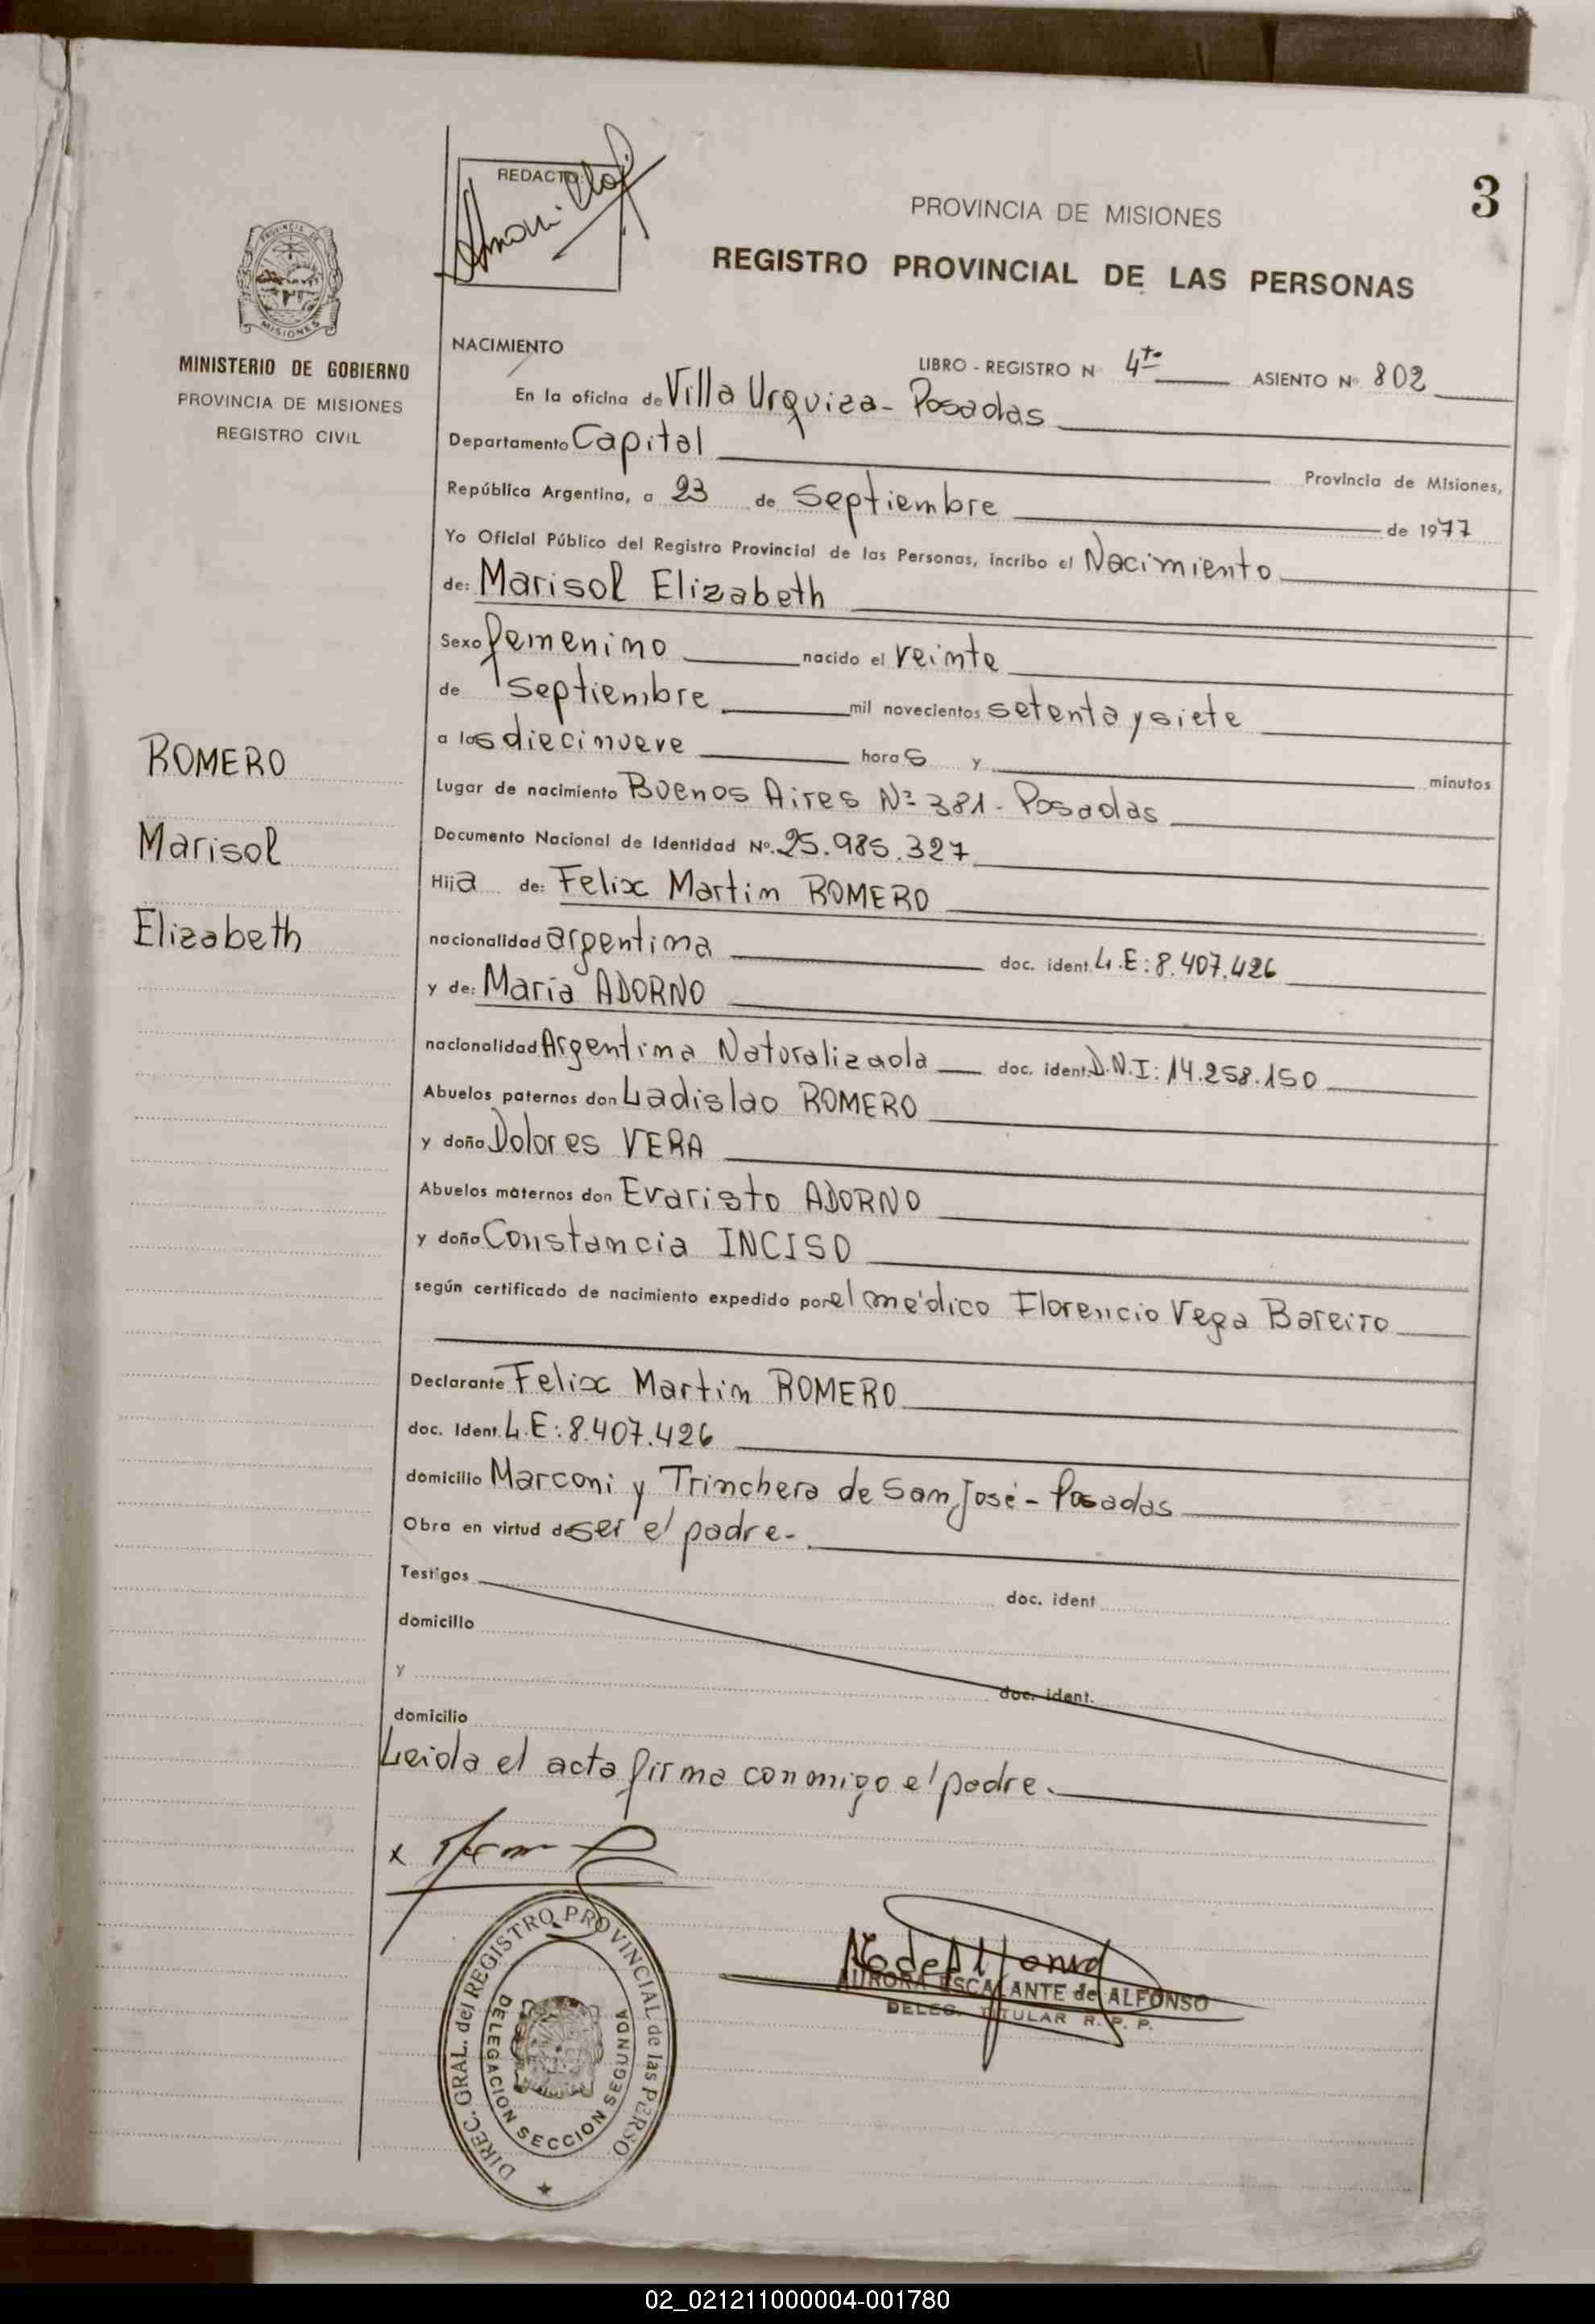 3
REDACTO:
PROVINCIA DE MISIONES
REGISTRO PROVINCIAL DE LAS PERSONAS
PROVINCIA DE
MISIONES
MINISTERIO DE GOBIERNO
PROVINCIA DE MISIONES
REGISTRO CIVIL
ROMERO
Marisol
Elizabeth
NACIMIENTO
LIBRO - REGISTRO N 4to ASIENTO No. 802
En la oficina de Villa Urquiza - Posadas
Departamento Capital Provincia de Misiones,
República Argentina, a 23 de Septiembre de 1977
Yo Oficial Público del Registro Provincial de las Personas, incribo el Nacimiento
de: Marisol Elizabeth
Sexo femenino nacido el veinte
de septiembre mil novecientos setenta y siete
a las diecinueve horas y minutos
Lugar de nacimiento Buenos Aires Nº 381 - Posadas
Documento Nacional de Identidad Nº. 25.985.327
Hija de: Felix Martin ROMERO
nacionalidad argentina doc. ident. L.E: 8.407.426
y de: Maria ADORNO
nacionalidad Argentina Naturalizada doc. ident. D.N.I: 14.258.150
Abuelos paternos don Ladislao ROMERO
y doña Dolores VERA
Abuelos maternos don Evaristo ADORNO
y doña Constancia INCISO
según certificado de nacimiento expedido por el médico Florencio Vega Bareiro
Declarante Felix Martin ROMERO
doc. Ident. L.E: 8.407.426
domicilio Marconi y Trinchera de San José - Posadas
Obra en virtud de ser el padre-
Testigos doc. ident
domicilio
y doc. ident.
domicilio
Leida el acta firma conmigo el padre.
x
AURORA ESCALANTE de ALFONSO
DELEG. TITULAR R. P. P.
DIREC. GRAL. del REGISTRO PROVINCIAL de las PERSO
DELEGACION SECCION SEGUNDA
02_021211000004-001780